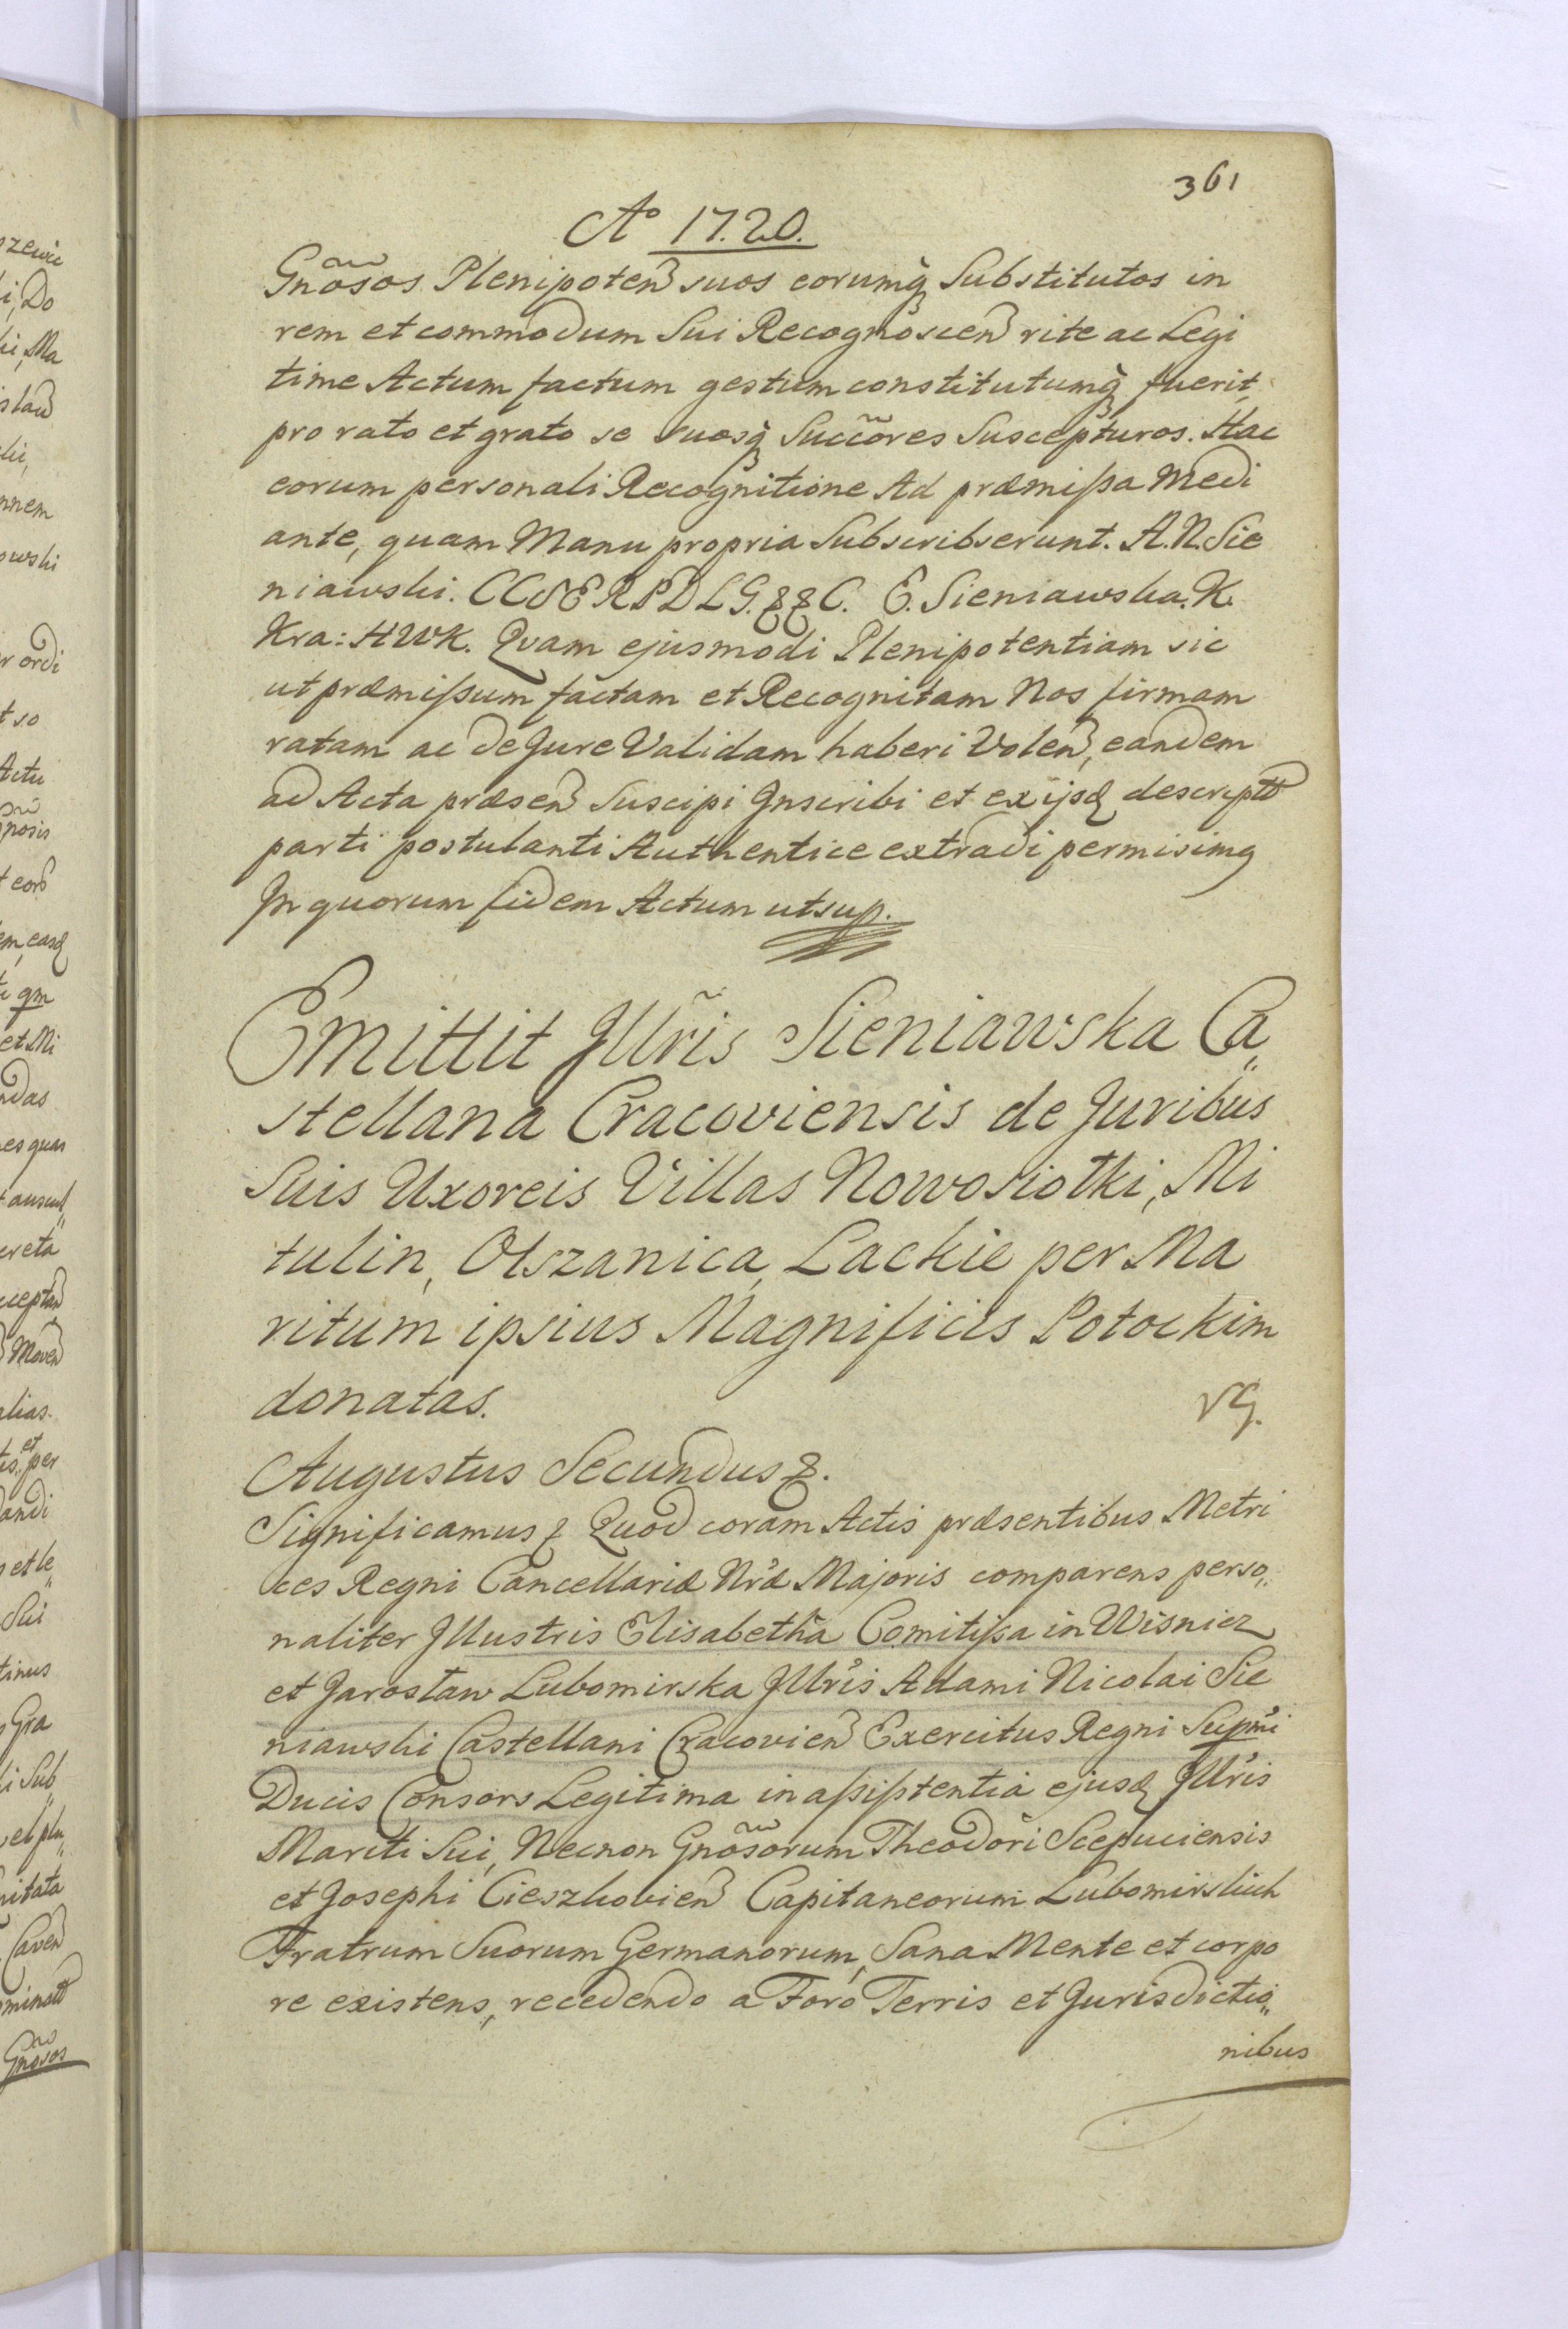 361
Ao 17.20.
Gnõsos Plenipoten suos eorumq̃ Substitutos in
rem et commodum Sui Recognoscen rite ac Legi
time Actum factum gestum constitutumq̃ fuerit,
pro rato et grato se suosq̃ Succõres Suscepturos. Hac
eorum personali Recognitione Ad præmissa Medi
ante, quam Manu propria Subscribserunt. A.N. Sie
niawski. CCSERPDLG. C. E. Sieniawska. K.
Kra: HWK. Quam ejusmodi Plenipotentiam sic
ut præmissum factam et Recognitam Nos firmam
ratam ac de Jure Validam haberi Volen, eandem
ad Acta præsen Suscipi Jnscribi et ex ijsd descrept
parti postulanti Authentice extradi permisimq
Jn quorum fidem Actum ut sup.
Emittit Jllr̃is Sieniawska Ca„
stellana Cracoviensis de Juribus
Suis Uxoreis Villas Nowosiołki, Mi
tulin, Olszanica, Lackie per Ma
ritum ipsius Magnificis Potockim
donatas.
VG.
Augustus Secundus &.
Significamus & Quod coram Actis præsentibus Metri
ces Regni Cancellariæ Nræ Majoris comparens perso„
naliter Jllustris Elisabetha Comitissa in Wisnicz
et Jarosław Lubomirska Jllris Adami Nicolai Sie
niawski Castellani Cracovien Exercitus Regni Supmi
Ducis Consors Legitima in assistentia ejusd Jllris
Mariti Sui, Necnon Gnõsorum Theodori Scepuciensis
et Josephi Cieszkovien Capitaneorum Lubomirskich
Fratrum Suorum Germanorum, Sana Mente et corpo
re existens, recedendo a Foro Terris et Jurisdictio„
nibus